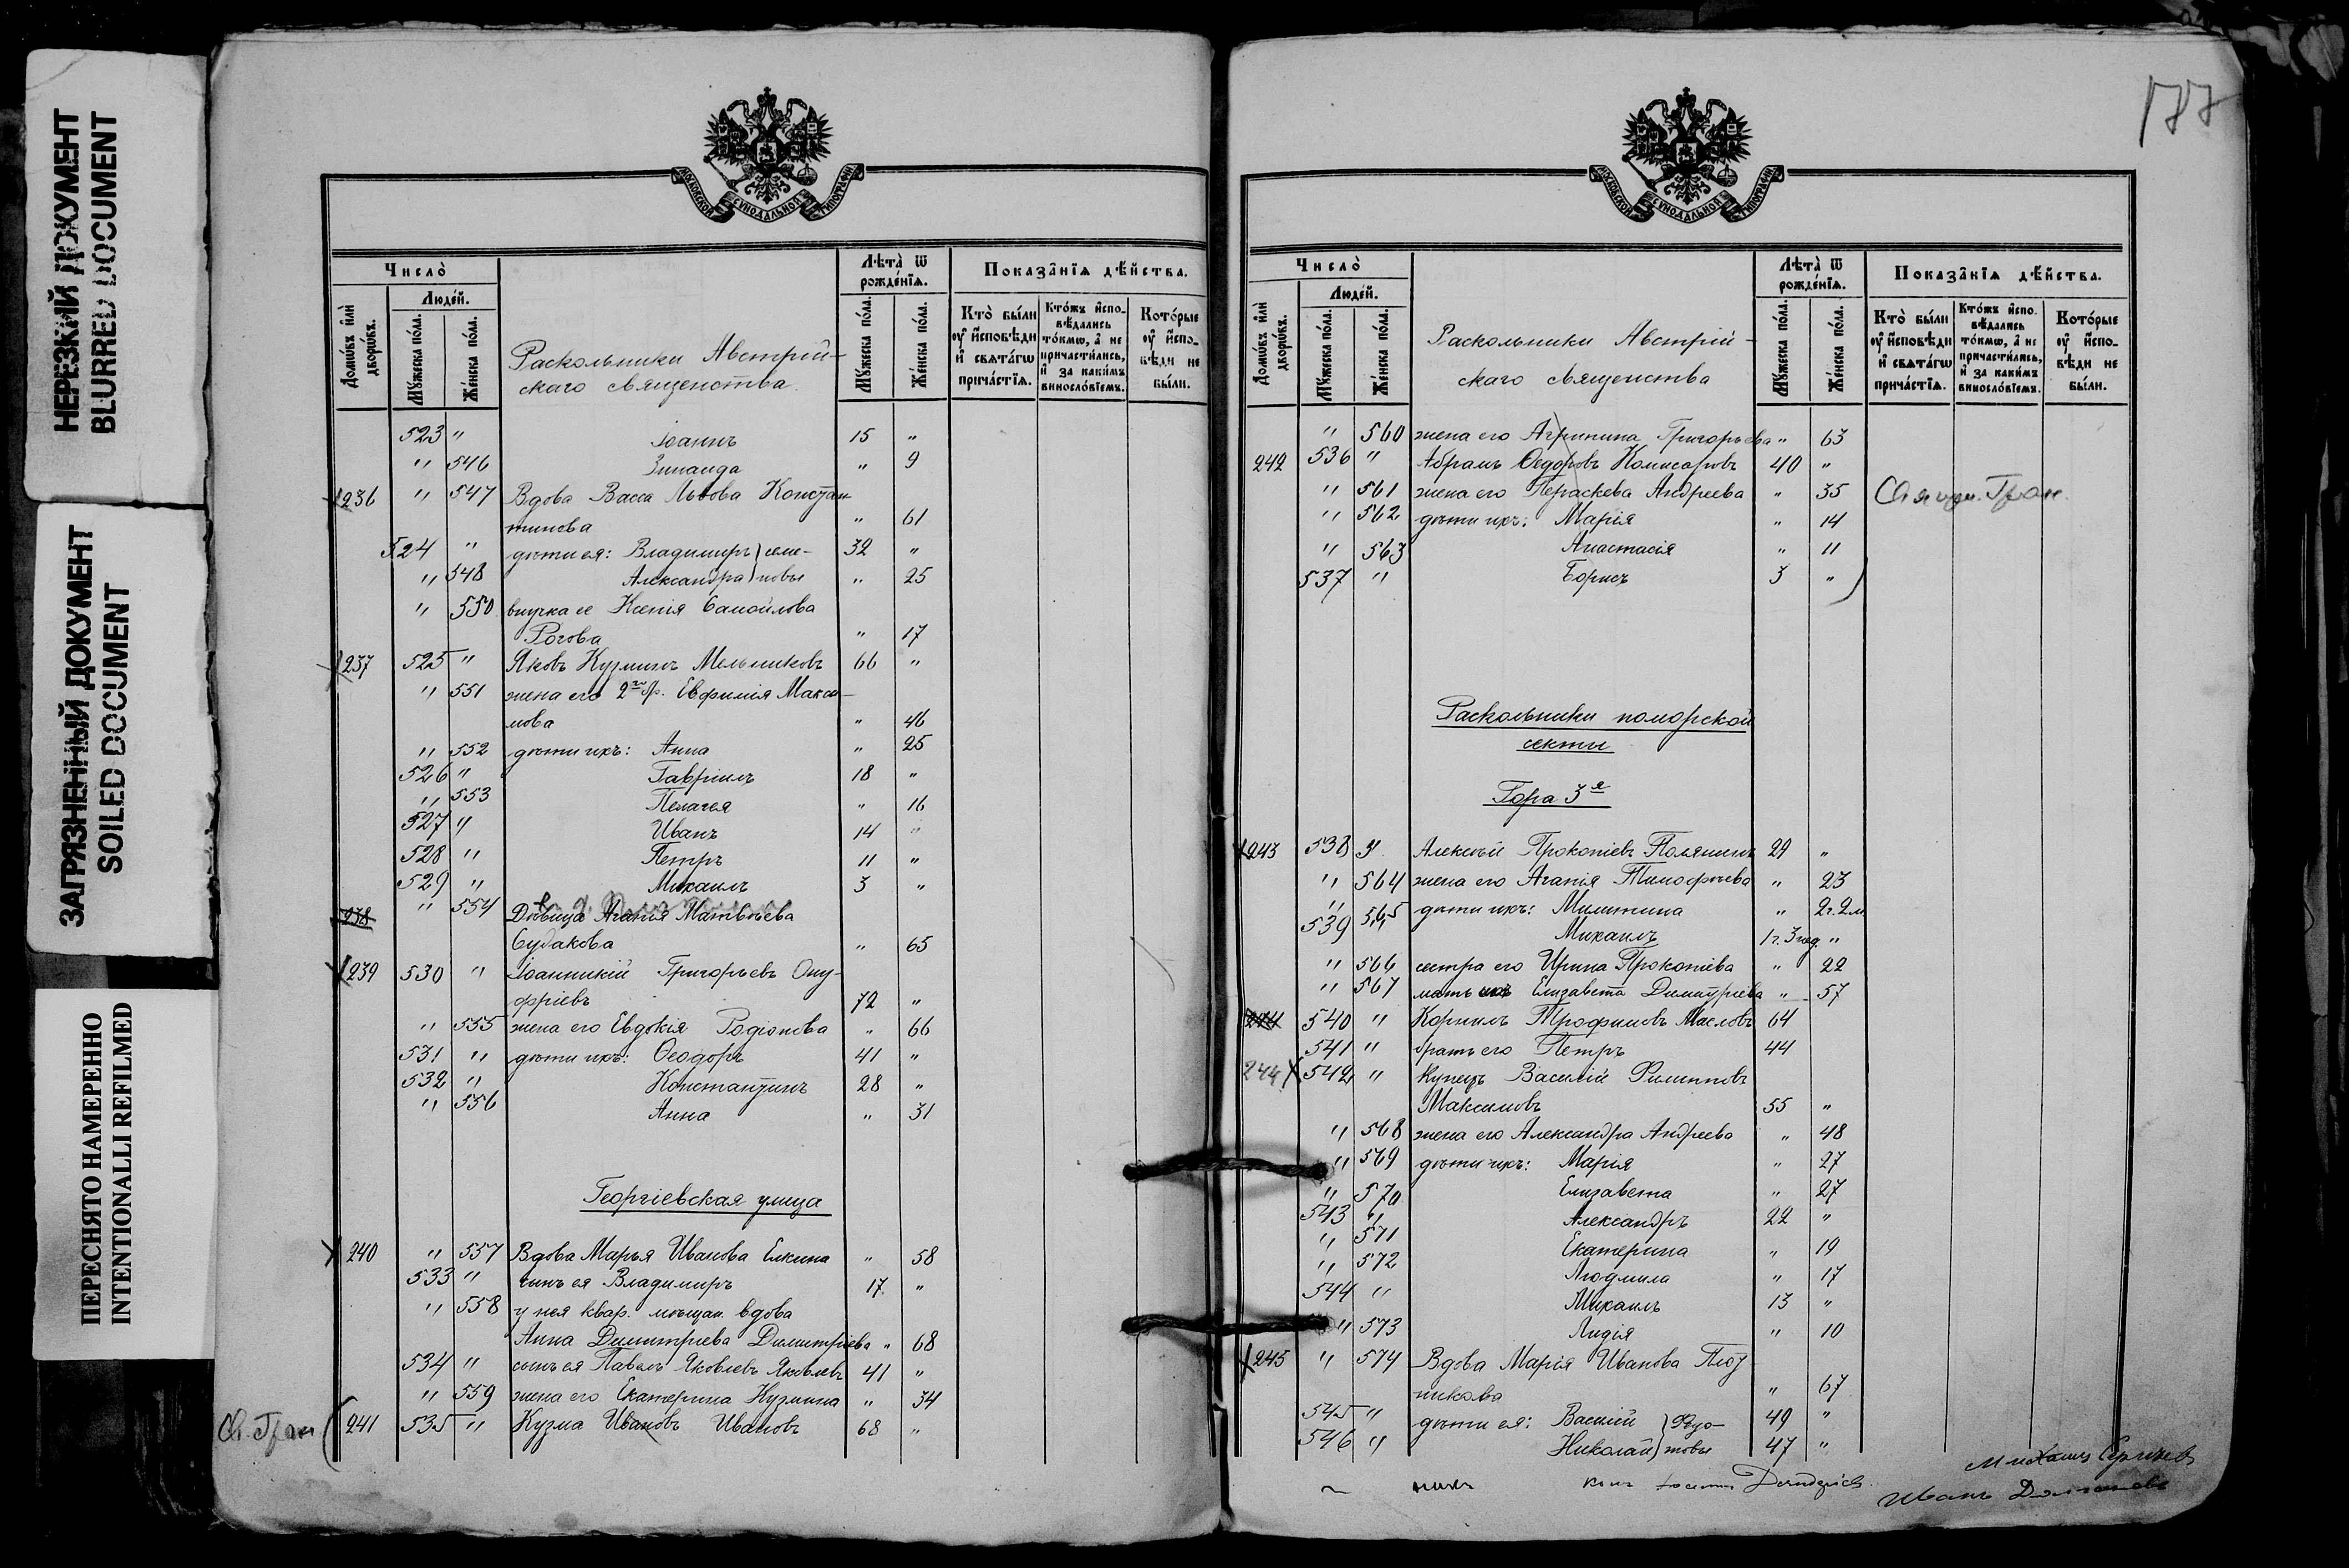 НЕРЕЗКИЙ ДОКУМЕНТ
BLURRED DOCUMENT
ЗАГРЯЗНЕННЫЙ ДОКУМЕНТ
SOILED DOCUMENT
ПЕРЕСНЯТО НАМЕРЕННО
INTENTIONALLI REFILMED
МОСКОВСКОЙ СѴНОДАЛЬНОЙ ТИПОГРАФІИ
Число̀
Людéй.
Домѡ́въ и҆лѝ дворѡ́въ.
Мꙋ́жеска по́ла.
Же́нска по́ла.
Раскольники Австрій-
скаго священства
Лѣ́та ѿ рожде́нїѧ.
Мꙋ́жеска по́ла.
Же́нска по́ла.
Показа̑нїѧ дѣ́йства.
Кто̀ бы́ли ᲂу҆ и҆́сповѣди и҆ свѧта́гѡ прича́стїѧ.
Кто́жъ и҆спо- вѣдались то́кмѡ, а҆ не причасти́лись, и҆ за каки́мъ винословїемъ.
Кото́рые ᲂу҆ и҆́спо- вѣди не бы́ли.
523 " Іоаннъ 15 "
" 546 Зинаида " 9
236 " 547 Вдова Васса Львова Констан-
тинова " 61
524 " дѣти ея: Владимиръ } семе- 32 "
" 548 Александра } новы " 25
" 550 внучка ее Ксенія Самойлова
Рогова " 17
237 525 " Яковъ Кузминъ Мельниковъ 66 "
" 551 жена его 2го бр. Евфимія Макси-
мова " 46
" 552 дѣти ихъ: Анна " 25
526 " Гавріилъ 18 "
" 553 Пелагея " 16
527 " Иванъ 14 "
528 " Петръ 11 "
529 " Михаилъ 3 "
238 " 554 Дѣвица Агапія Матвѣева
Судакова " 65
239 530 " Іоанникій Григорьевъ Ону-
фріевъ 72 "
" 555 жена его Евдокія Родіонова " 66
531 " дѣти ихъ: Ѳеодоръ 41 "
532 " Константинъ 28 "
" 556 Анна " 31
Георгіевская улица
240 " 557 Вдова Марья Иванова Елкина " 58
533 " сынъ ея Владимиръ 17 "
" 558 у нея квар. мѣщан. вдова
Анна Димитриева Димитріева " 68
534 " сынъ ея Павелъ Яковлевъ Яковлевъ 41 "
" 559 жена его Екатерина Кузмина " 34
241 535 " Кузма Ивановъ Ивановъ 68 "
МОСКОВСКОЙ СѴНОДАЛЬНОЙ ТИПОГРАФІИ
Число̀
Людéй.
Домѡ́въ и҆лѝ дворѡ́въ.
Мꙋ́жеска по́ла.
Же́нска по́ла.
Раскольники Австрій-
скаго священства
Лѣ́та ѿ рожде́нїѧ.
Мꙋ́жеска по́ла.
Же́нска по́ла.
Показа̑нїѧ дѣ́йства.
Кто̀ бы́ли ᲂу҆ и҆́сповѣди и҆ свѧта́гѡ прича́стїѧ.
Кто́жъ и҆спо- вѣдались то́кмѡ, а҆ не причасти́лись, и҆ за каки́мъ винословїемъ.
Кото́рые ᲂу҆ и҆́спо- вѣди не бы́ли.
" 560 жена его Агрипина Григорьева " 63
242 536 " Абрамъ Ѳедоровъ Комисаровъ 40 "
" 561 жена его Пераскева Андреева " 35
" 562 дѣти ихъ: Марія " 14
" 563 Анастасія " 11
537 " Борисъ 3 "
Раскольники поморской
секты
Гора 3я
243 538 " Алексѣй Прокопіевъ Полянинъ 29 "
" 564 жена его Агапія Тимофѣева " 23
" 565 дѣти ихъ: Милитина " 2г. 2м
539 " Михаилъ 1г. 3нед. "
" 566 сестра его Ирина Прокопіева " 22
" 567 мать ихъ Елизавета Димитріева " 57
244 540 " Корнилъ Трофимовъ Масловъ 64
541 " братъ его Петръ 44
244 542 " Купецъ Василій Филипповъ
Максимовъ 55 "
" 568 жена его Александра Андреева " 48
" 569 дѣти ихъ: Марія " 27
" 570 Елизавета " 27
543 " Александръ 22 "
" 571 Екатерина " 19
" 572 Людмила " 17
544 " Михаилъ 13 "
" 573 Лидія " 10
245 " 574 Вдова Марія Иванова Плот-
никова " 67
545 " дѣти ея: Василій } Ѳедо- 49 "
546 " Николай } товы 47 "
Иванъ